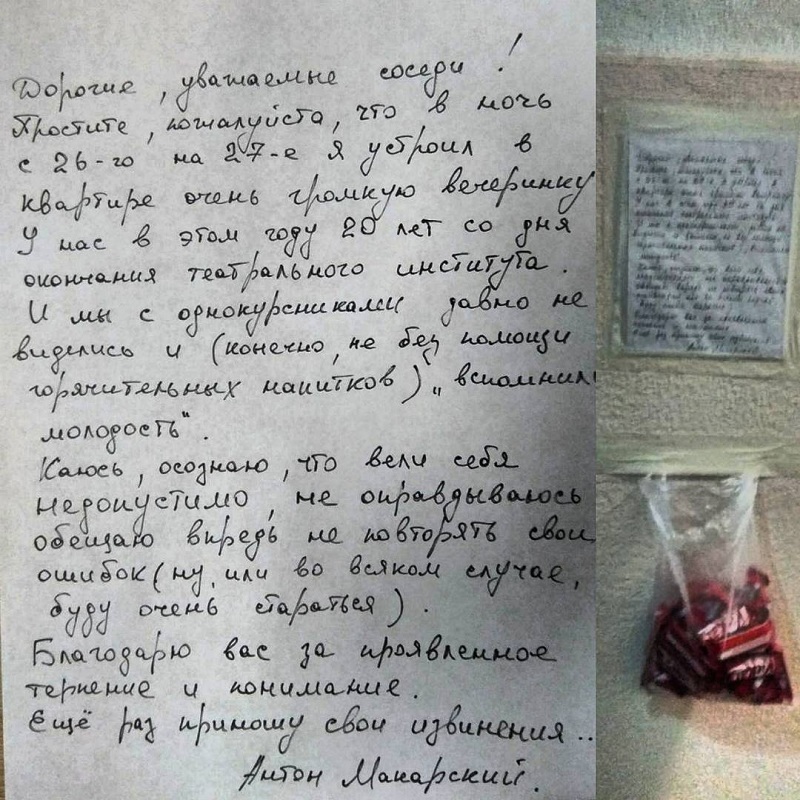 Дорогие, уважаемые соседи!
Простите, пожалуйста, что в ночь
с 26-го на 27-е я устроил в
квартире очень громкую вечеринку
У нас в этом году 20 лет со дня
окончания театрального института.
И мы с однокурсниками давно не
виделись и (конечно, не без помощи
горячительных напитков) „вспомнили
молодость".
Каюсь, осознаю, что вели себя
недопустимо, не оправдываюсь
обещаю впредь не повторять свои
ошибок (ну, или во всяком случае,
буду очень стараться).
Благодарю вас за проявленное
терпение и понимание.
Ещё раз приношу свои извинения..
Антон Макарский.